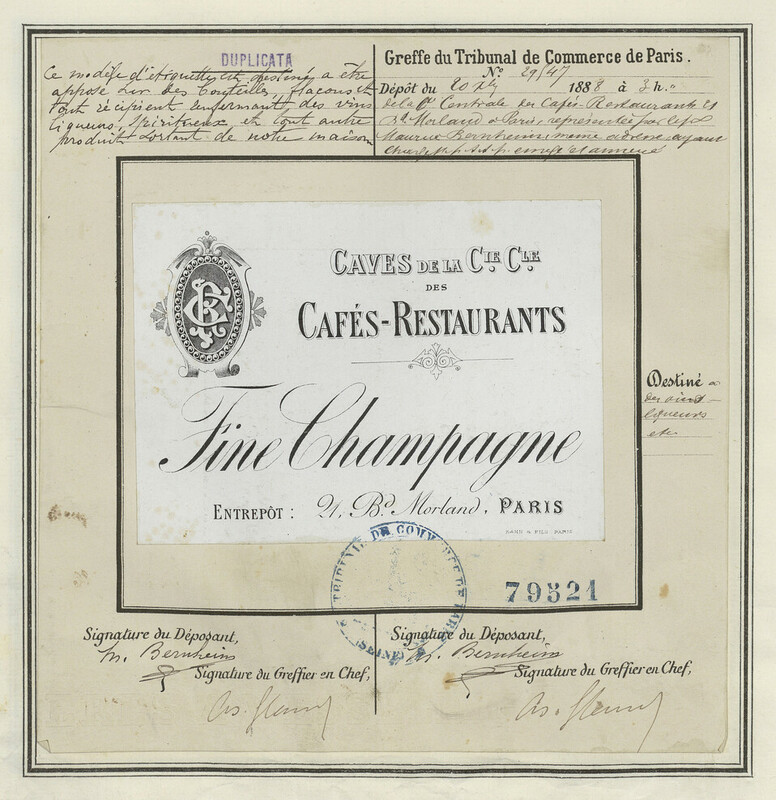 DUPLICATA
Ce modèle d'étiquette est destiné a être
apposé sur des bouteilles, flacons et
tout récipient renfermant des vins
liqueurs, spiritueux et tout autre
produit sortant de notre maison
Greffe du Tribunal de Commerce de Paris.
No 29/47
Dépôt du 20 1888 à 3 h.
de la Cie Centrale des Cafés-Restaurants 21
Bd Morland à Paris, représentée par le Sr
Maurice Bernheim, même adresse ayant
CAVES DE LA CIE CLE
DES
CAFÉS-RESTAURANTS
Fine Champagne
ENTREPÔT : 21, Bd. Morland, PARIS
Destiné a
des vins
liqueurs
etc
TRIBUNAL DE COMMERCE DE PARIS
(SEINE)
79521
Signature du Déposant,
M. Bernheim
Signature du Greffier en Chef,
Signature du Déposant,
M. Bernheim
Signature du Greffier en Chef,